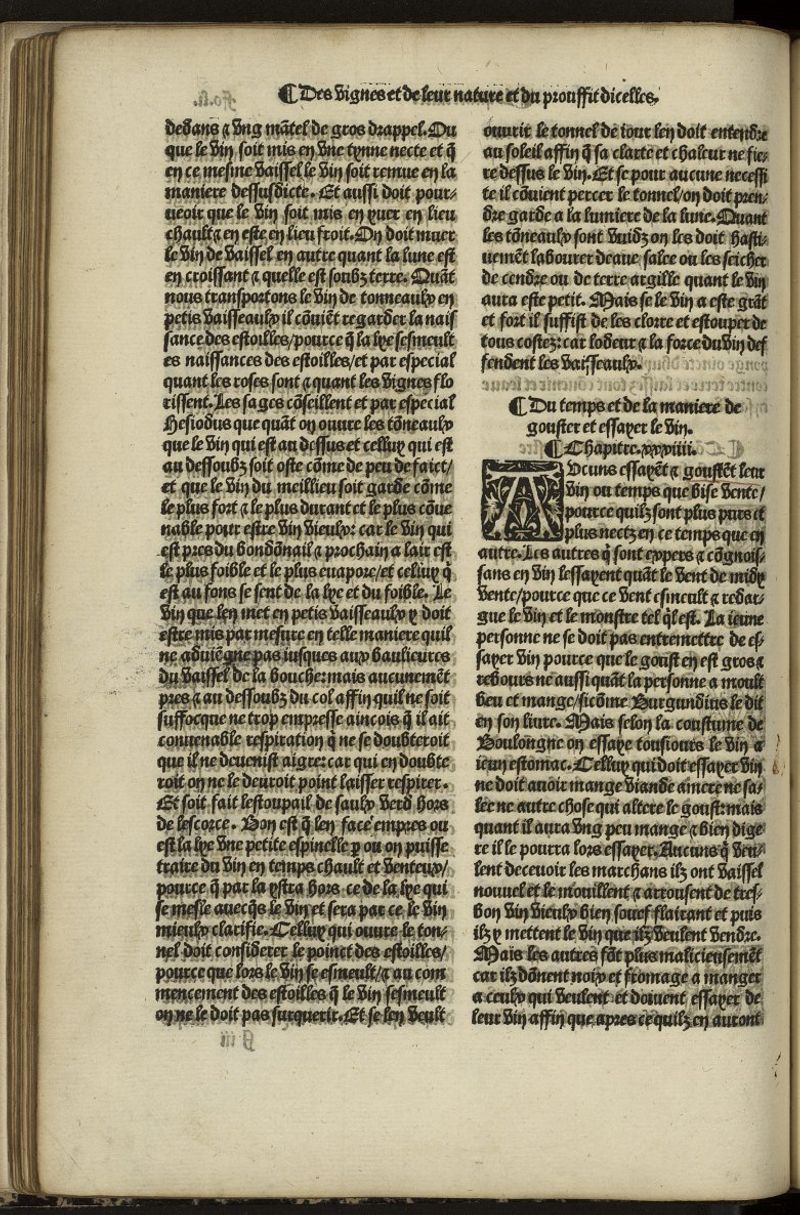 ¶ Des vignes et de leur nature et du prouffit dicelles.
dedans ⁊ vng mãtel de gros drappel. Ou
que le vin soit mis en vne tynne necte et q̃
en ce mesme vaissel le vin soit remue en la
maniere dessusdicte. Et aussi doit pour-
ueoir que le vin soit mis en yuer en lieu
chault ⁊ en este en lieu froit. On doit muer
le vin de vaissel en autre quant la lune est
en croissant ⁊ quelle est soubz terre. Quãt
nous transportons le vin de tonneaulx en
petis vaisseaulx il cõuiẽt regarder la nais
sance des estoilles/pource q̃ la lye sesmeult
es naissances des estoilles/et par especial
quant les roses sont ⁊ quant les vignes flo
rissent. Les sages cõseillent et par especial
Hesiodus que quãt on ouure les tõneaulx
que le vin qui est au dessus et celluy qui est
au dessoubz soit oste cõme de peu de faict/
et que le vin du meillieu soit garde cõme
le plus fort ⁊ le plus durant et le plus cõue
nable pour estre vin vieulx: car le vin qui
est pres du bondõnail ⁊ prochain a lair est
le plus foible et le plus euapore/et celluy q̃
est au fons se sent de la lye et du foible. Le
vin que len met en petis vaisseaulx y doit
estre mis par mesure en telle maniere quil
ne aduiẽgne pas iusques aux baulieures
du vaissel de la bouche: mais aucunemẽt
pres ⁊ au dessoubz du col affin quil ne soit
suffocque ne trop empresse aincois q̃ il ait
conuenable respiration q̃ ne se doubteroit
que il ne deuenist aigre: car qui en doubte
roit on ne le deuroit point laisser respirer.
Et soit fait lestoupail de saulx verd hors
de lescorce. Bon est q̃ len face empres ou
est la lye vne petite espinelle ꝑ ou on puisse
traire du vin en temps chault et venteux/
pource q̃ par la ystra hors ce de la lye qui
se mesle auecq̃s le vin et sera par ce le vin
mieulx clarifie. Celluy qui ouure le ton-
nel doit considerer le poinct des estoilles/
pource que lors le vin se esmeult/⁊ au com
mencement des estoilles q̃ le vin sesmeult
on ne le doit pas surquerir. Et se len veult
ouurir le tonnel de iour len doit entendre
au soleil affin q̃ sa clarte et chaleur ne fie-
re dessus le vin. Et se pour aucune necessi
te il cõuient percer le tonnel/on doit pren-
dre garde a la lumiere de la lune. Quant
les tõneaulx sont vuidz on les doit hasti-
uemẽt labourer deaue salee ou les seicher
de cendre ou de terre argille quant le vin
aura este petit. Mais se le vin a este grãt
et fort il suffist de les clorre et estouper de
tous costez: car lodeur ⁊ la force du vin def
fendent les vaisseaulx.
¶ Du temps et de la maniere de
gouster et essayer le vin.
¶ Chapitre. xxxiiii.
AVcuns essayẽt ⁊ goustẽt leur
vin ou temps que bise vente/
pource quilz sont plus purs et
plus nectz en ce temps que en
autre. Les autres q̃ sont expers ⁊ cõgnois-
sans en vin lessayent quãt le vent de midy
vente/pource que ce vent esmeult ⁊ rebar-
gue le vin et le monstre tel q̃l est. La ieune
personne ne se doit pas entremettre de es-
sayer vin pource que le goust en est gros ⁊
rebours ne aussi quãt la personne a moult
beu et mange/sicõme Burgundius le dit
en son liure. Mais selon la coustume de
Boulongne on essaye tousiours le vin a
ieun estomac. Celluy qui doit essayer vin
ne doit auoir mange viande amere ne sa-
lee ne autre chose qui altere le goust: mais
quant il aura vng peu mange ⁊ bien dige
re il le pourra lors essayer. Aucuns q̃ veu-
lent deceuoir les marchans ilz ont vaissel
nouuel et le mouillent ⁊ arrousent de tres-
bon vin vieulx bien souef flairant et puis
ilz y mettent le vin que ilz veulent vendre.
Mais les autres fõt plus malicieusemẽt
car ilz dõnent noix et fromage a manger
a ceulx qui veulent et doiuent essayer de
leur vin affin que apres ce quilz en auront